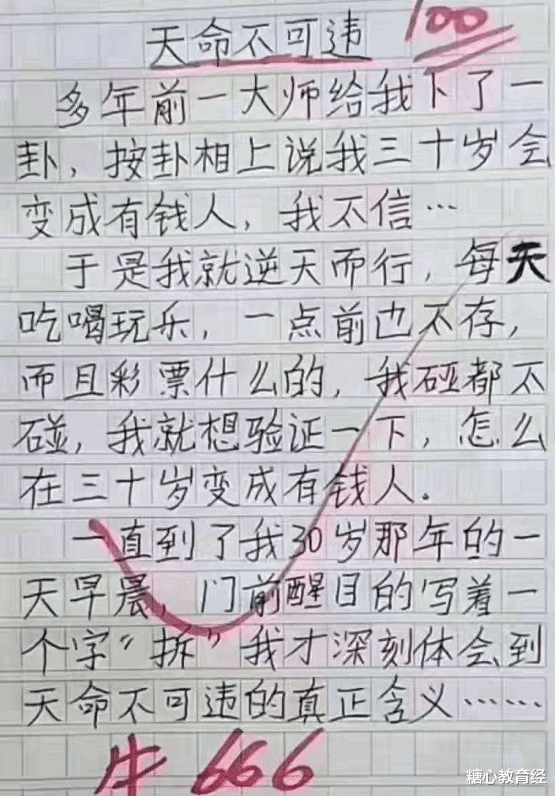 天命不可违
100
多年前一大师给我下了一
卦，按卦相上说我三十岁会
变成有钱人，我不信…
于是我就逆天而行，每天
吃喝玩乐，一点前也不存，
而且彩票什么的，我碰都不
碰，我就想验证一下，怎么
在三十岁变成有钱人。
一直到了我30岁那年的一
天早晨，门前醒目的写着一
个字“拆”我才深刻体会到
天命不可违的真正含义……
牛 666
糖心教育经